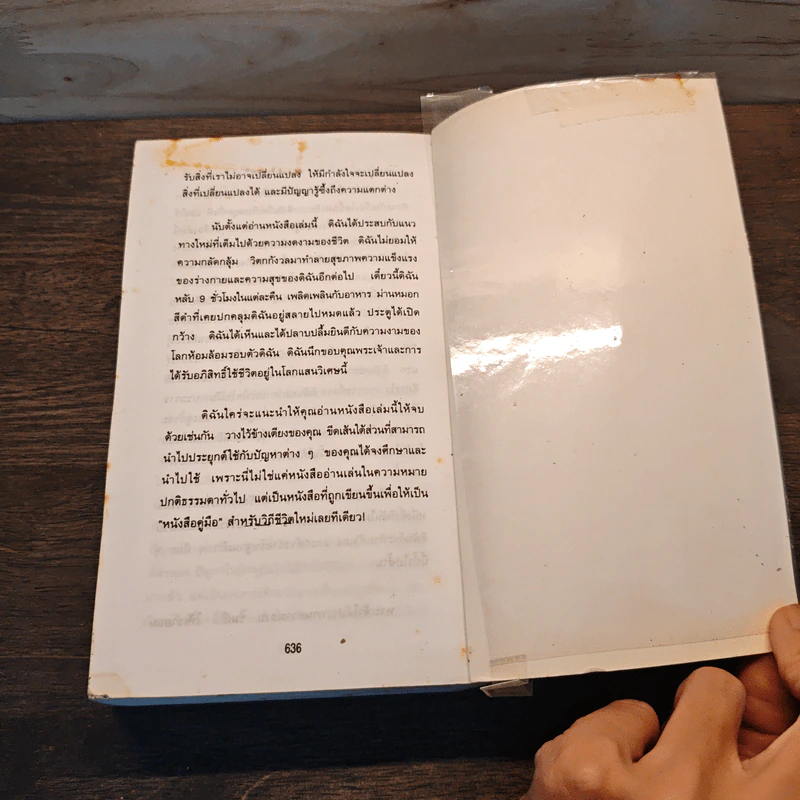 รับสิ่งที่เราไม่อาจเปลี่ยนแปลง ให้มีกำลังใจจะเปลี่ยนแปลง
สิ่งที่เปลี่ยนแปลงได้ และมีปัญญารู้ซึ้งถึงความแตกต่าง
นับตั้งแต่อ่านหนังสือเล่มนี้ ดิฉันได้ประสบกับแนว
ทางใหม่ที่เต็มไปด้วยความงดงามของชีวิต ดิฉันไม่ยอมให้
ความกลัดกลุ้ม วิตกกังวลมาทำลายสุขภาพความแข็งแรง
ของร่างกายและความสุขของดิฉันอีกต่อไป เดี๋ยวนี้ดิฉัน
หลับ 9 ชั่วโมงในแต่ละคืน เพลิดเพลินกับอาหาร ม่านหมอก
สีดำที่เคยปกคลุมดิฉันอยู่สลายไปหมดแล้ว ประตูได้เปิด
กว้าง ดิฉันได้เห็นและได้ปลาบปลื้มยินดีกับความงามของ
โลกห้อมล้อมรอบตัวดิฉัน ดิฉันนึกขอบคุณพระเจ้าและการ
ได้รับอภิสิทธิ์ใช้ชีวิตอยู่ในโลกแสนวิเศษนี้
ดิฉันใคร่จะแนะนำให้คุณอ่านหนังสือเล่มนี้ให้จบ
ด้วยเช่นกัน วางไว้ข้างเตียงของคุณ ขีดเส้นใต้ส่วนที่สามารถ
นำไปประยุกต์ใช้กับปัญหาต่าง ๆ ของคุณได้จงศึกษาและ
นำไปใช้ เพราะนี่ไม่ใช่แค่หนังสืออ่านเล่นในความหมาย
ปกติธรรมดาทั่วไป แต่เป็นหนังสือที่ถูกเขียนขึ้นเพื่อให้เป็น
“หนังสือคู่มือ” สำหรับวิถีชีวิตใหม่เลยทีเดียว!
636